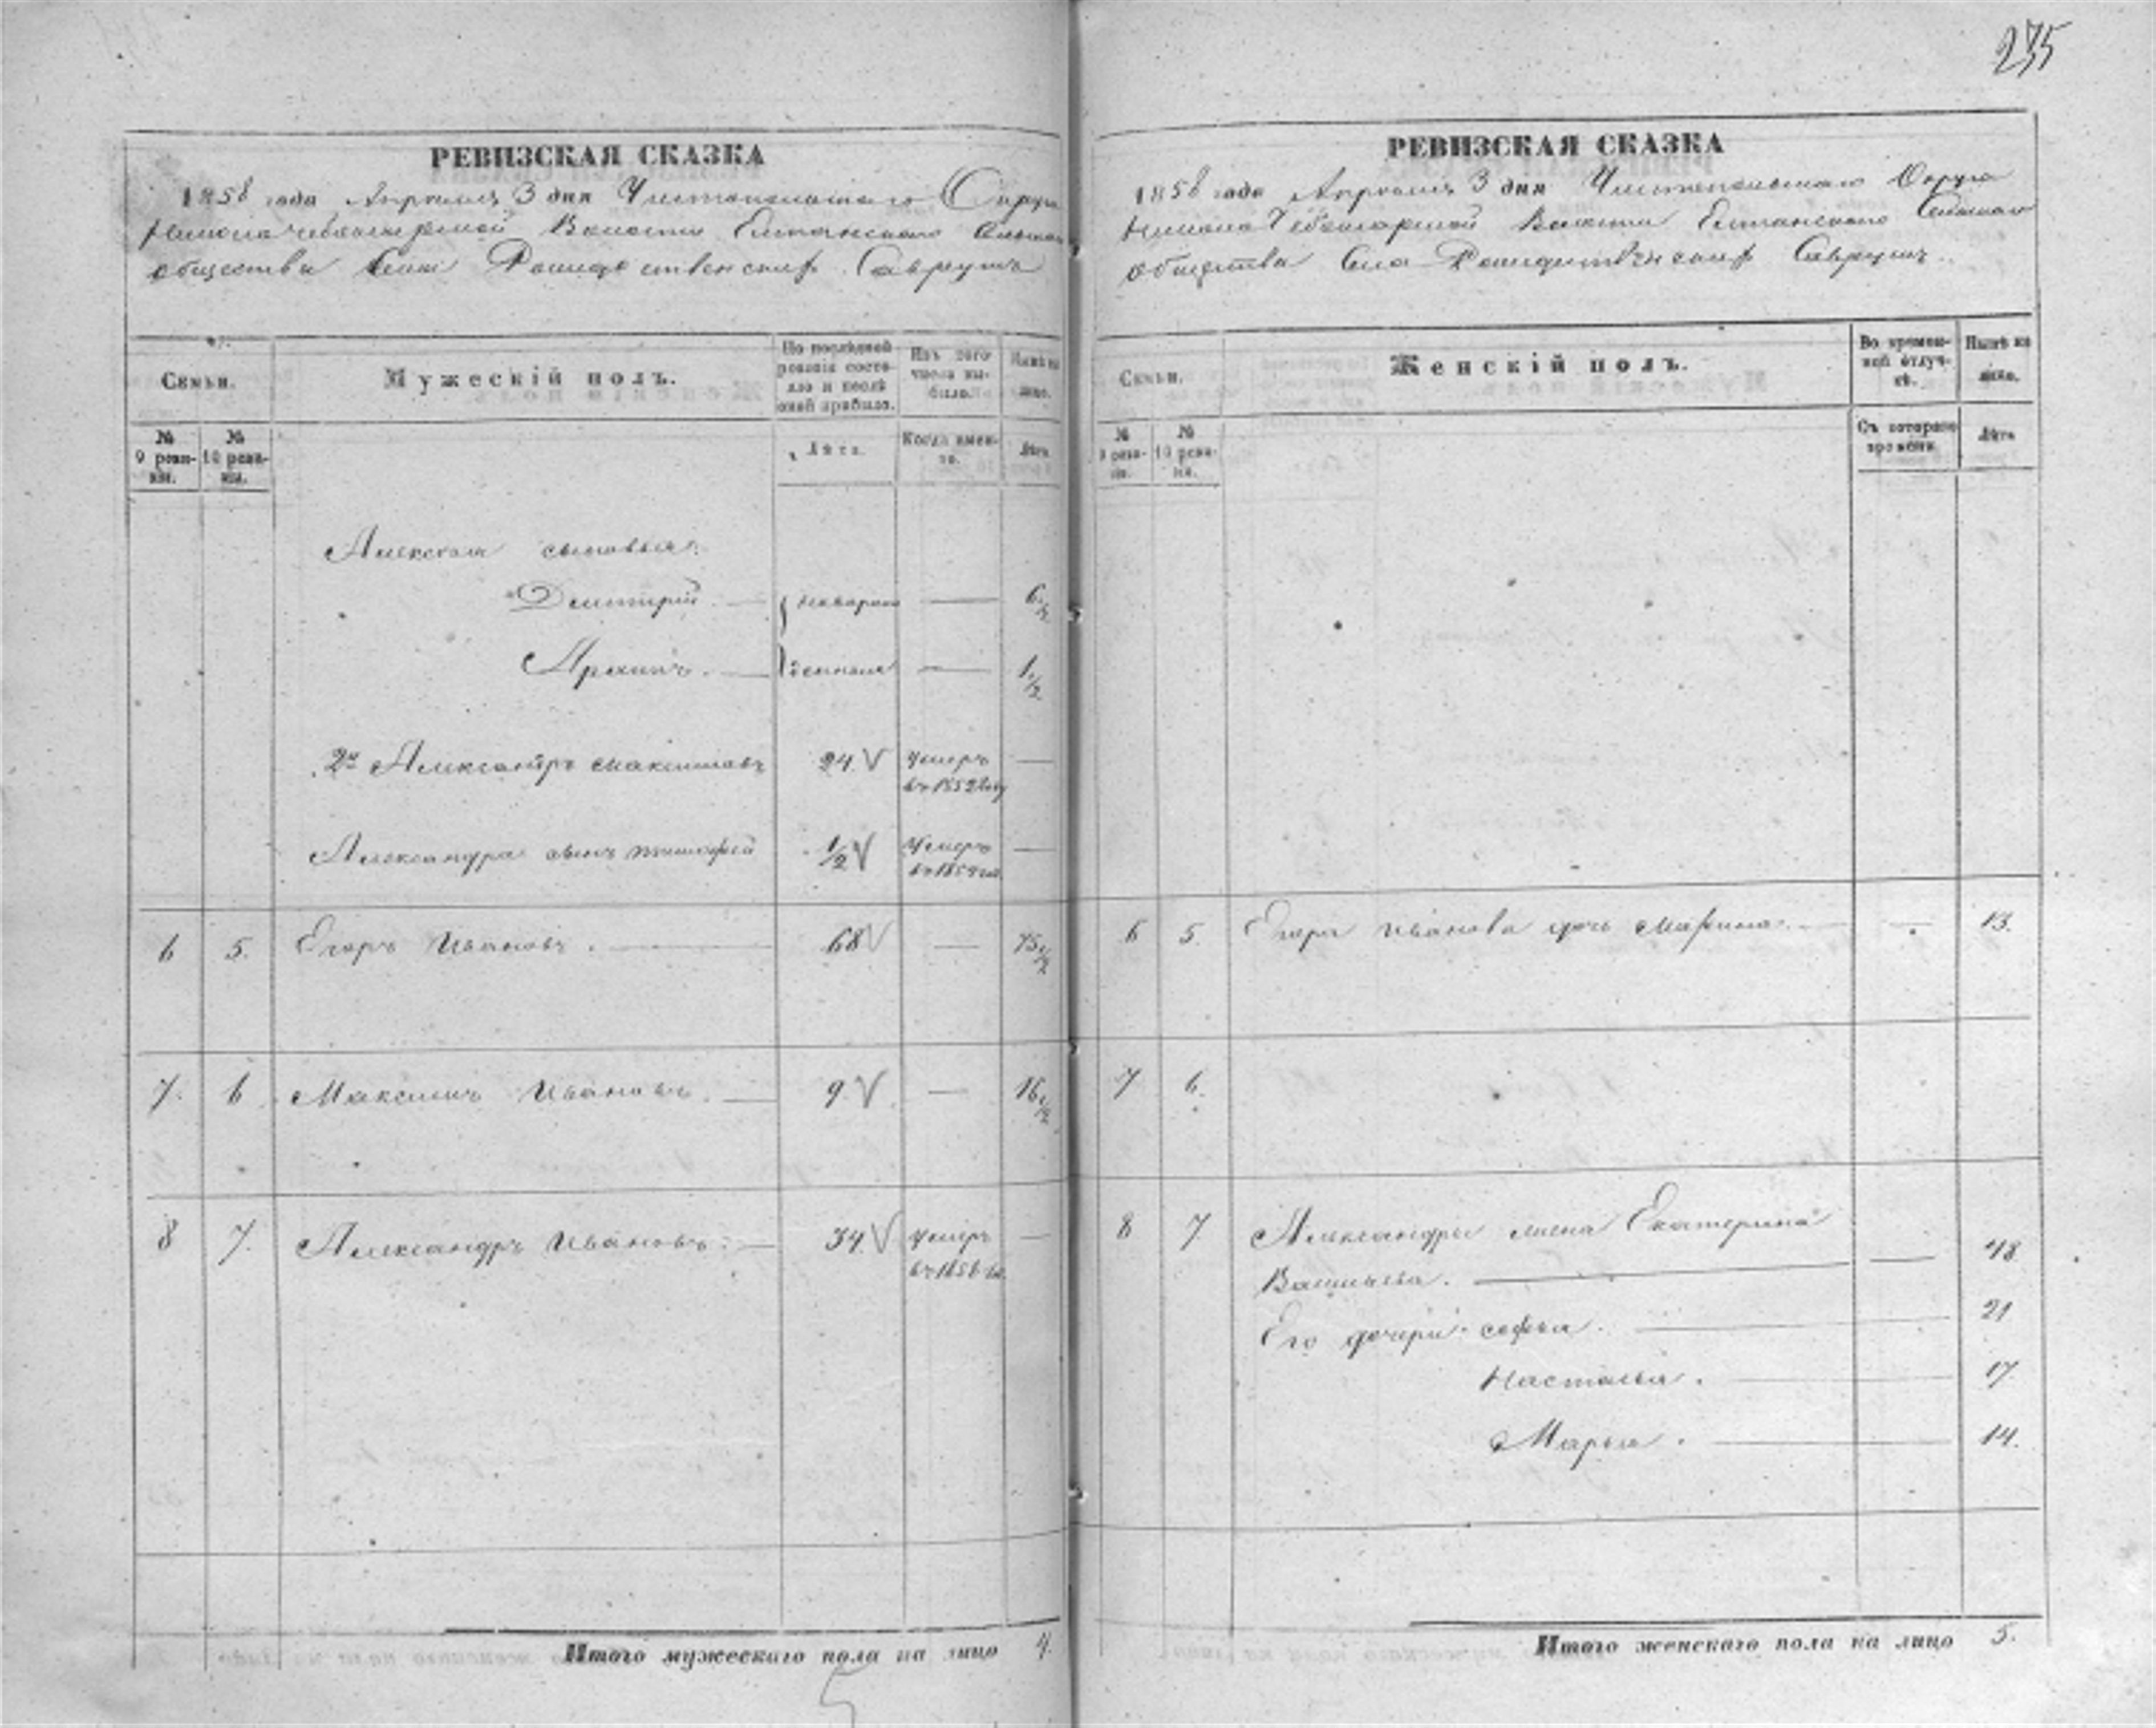 235
РЕВИЗСКАЯ СКАЗКА
1858 года Апреля 3 дня Чистопольскаго Округа
Волости Елтанскаго Сельскаго
общества Села Рождественскихъ Савруш
Семьи.
Мужескій полъ.
По послѣдней ревизіи состояло и послѣ оной прибыло.
Изъ того числа выбыло.
Нынѣ на лицо.
№ 9 ревизіи.
№ 10 ревизіи.
Лѣта.
Когда именно.
Лѣта.
Алексея сыновья:
Дмитрій — — 6 1/2
Архипъ. — — 1 1/2
2й Александръ Максимовъ 24 V Умеръ —
въ 1852 году
Александра сынъ Тимофей 1/2 V Умеръ —
6 5. Егоръ Ивановъ. — 68 V — 75 1/2
7. 6 Максимъ Ивановъ. — 9. V — 16 1/2
8 7. Александръ Ивановъ. — 34 V Умеръ —
въ 1856
Итого мужескаго пола на лицо 4.
РЕВИЗСКАЯ СКАЗКА
1858 года Апреля 3 дня Чистопольскаго Округа
Волости Елтанскаго Сельскаго
общества Села Рождественскихъ Савруш
Семьи.
Женскій полъ.
Во временной отлучкѣ.
Нынѣ на лицо.
№ 9 ревизіи.
№ 10 ревизіи.
Съ котораго времени.
Лѣта
6 5. Егора Иванова дочь Марина. — — 13.
7 6.
8 7 Александры жена Екатерина
Васильева. — — 48
Его дочери: Софья. — 21
Настасья. — 17
Марья. — 14.
Итого женскаго пола на лицо 5.